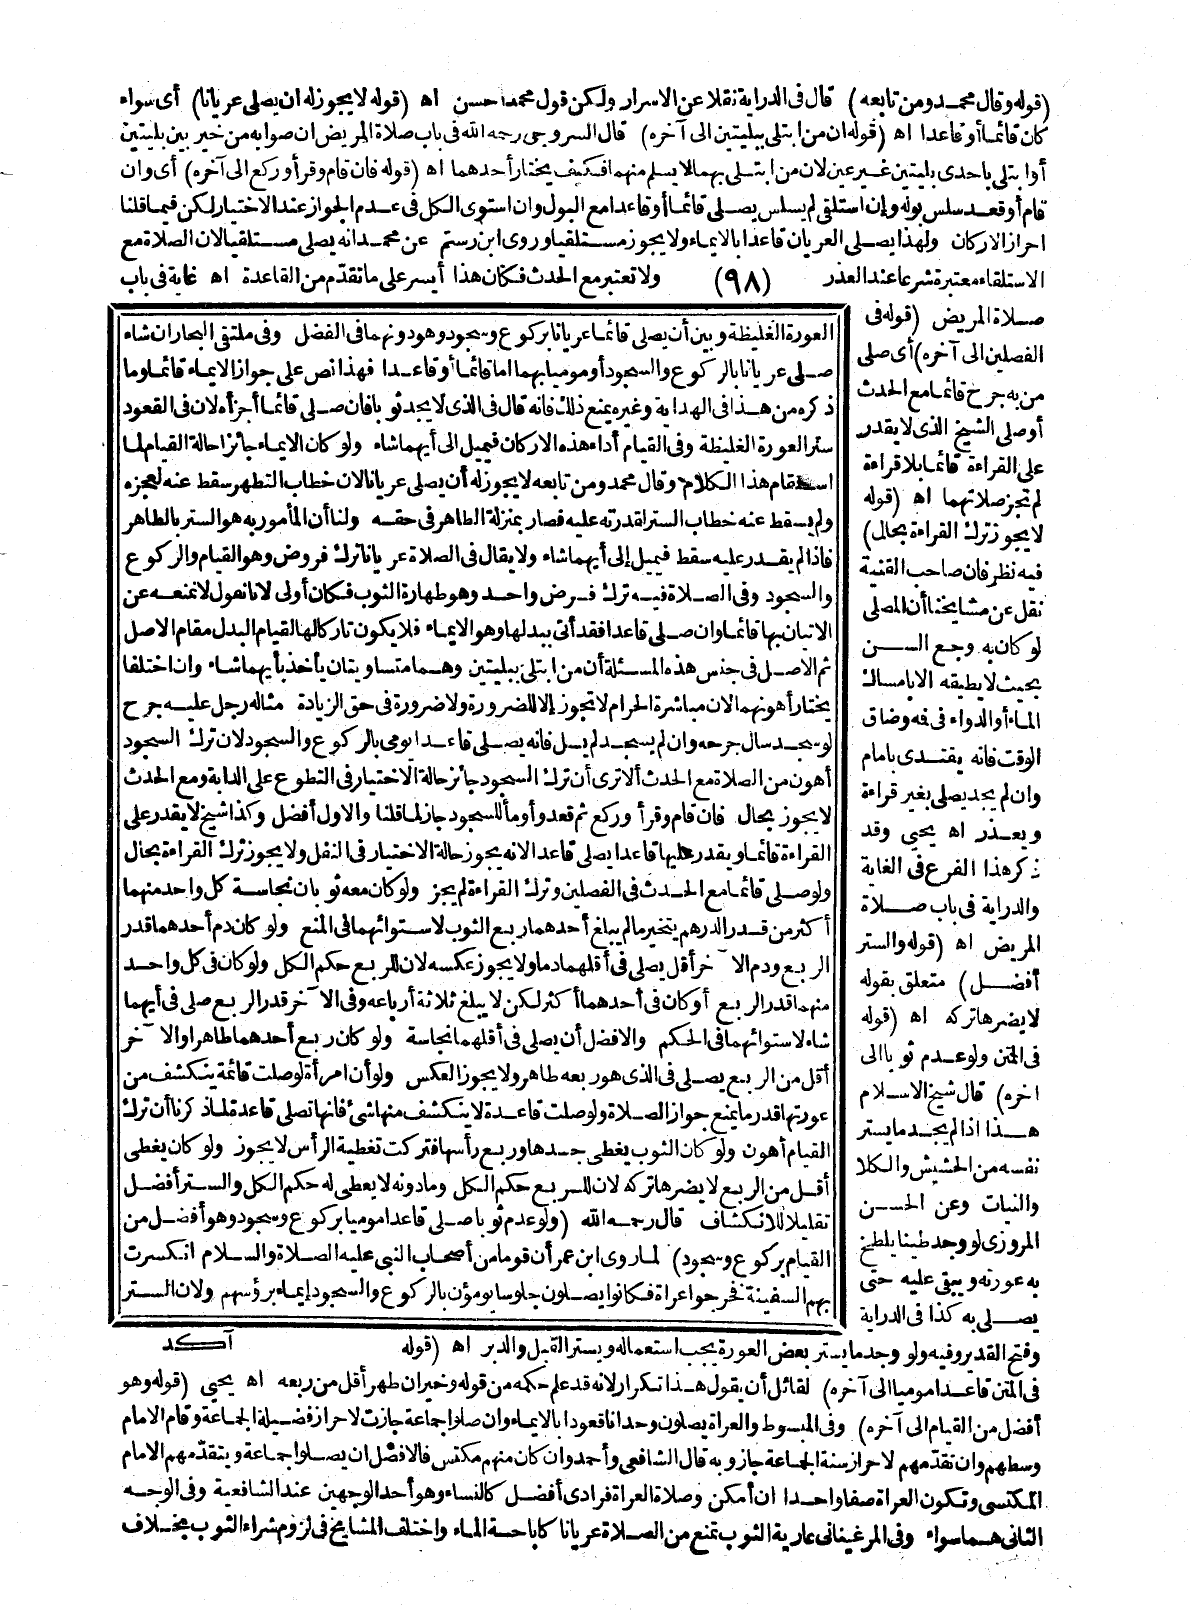 (قوله وقال محمد ومن تابعه) قال فى الدراية نقلا عن الاسرار ولكن قول محمد احسن اه (قوله لا يجوز له ان يصلى عريانا) أى سواء
كان قائما أو قاعدا اه (قوله ان من ابتلى ببليتين الى آخره) قال السروجى رحمه الله فى باب صلاة المريض ان صوابه من خير بين بليتين
أو ابتلى باحدى بليتين غير عين لان من ابتلى بهما لا يسلم منهما فكيف يختار أحدهما اه (قوله فان قام وقرأ وركع الى آخره) أى وان
قام أو قعد سلس بوله وإن استلقى لم يسلس يصلى قائما أو قاعدا مع البول وان استوى الكل فى عدم الجواز عند الاختيار لكن فيما قلنا
احراز الاركان ولهذا يصلى العريان قاعدا بالايماء ولا يجوز مستلقيا وروى ابن رستم عن محمد انه يصلى مستلقيا لان الصلاة مع
الاستلقاء معتبرة شرعا عند العذر (٩٨) ولا تعتبر مع الحدث فكان هذا أيسر على ما تقدّم من القاعدة اه غاية فى باب
صلاة المريض (قوله فى
الفصلين الى آخره) أى صلى
من به جرح قائما مع الحدث
أو صلى الشيخ الذى لا يقدر
على القراءة قائما بلا قراءة
لم تجز صلاتهما اه (قوله
لا يجوز ترك القراءة بحال)
فيه نظر فان صاحب القنية
نقل عن مشايخنا أن المصلى
لو كان به وجع السن
بحيث لا يطيقه الا بامساك
الماء أو الدواء فى فه وضاق
الوقت فانه يقتدى بامام
وان لم يجد يصلى بغير قراءة
ويعذر اه يحيى وقد
ذكر هذا الفرع فى الغاية
والدراية فى باب صلاة
المريض اه (قوله والستر
أفضل) متعلق بقوله
لا يضرها تركه اه (قوله
فى المتن ولو عدم ثوبا الى
اخره) قال شيخ الاسلام
هذا اذا لم يجد ما يستر
نفسه من الحشيش والكلا
والنبات وعن الحسن
المروزى لو وجد طينا يلطخ
به عورته ويبقى عليه حتى
يصلى به كذا فى الدراية
العورة الغليظة وبين أن يصلى قائما عريانا بركوع وسجود وهو دونهما فى الفضل وفى ملتقى البحار ان شاء
صلى عريانا بالركوع والسجود أو موميا بهما اما قائما أو قاعدا فهذا نص على جواز الايماء قائما وما
ذكره من هذا فى الهداية وغيره يمنع ذلك فانه قال فى الذى لا يجد ثوبا فان صلى قائما أجزأه لان فى القعود
ستر العورة الغليظة وفى القيام أداء هذه الاركان فيميل الى أيهما شاء ولو كان الايماء جائزا حالة القيام لما
استقام هذا الكلام وقال محمد ومن تابعه لا يجوز له أن يصلى عريانا لان خطاب التطهر سقط عنه لعجزه
ولم يسقط عنه خطاب الستر لقدرته عليه فصار بمنزلة الطاهر فى حقه ولنا أن المأمور به هو الستر بالطاهر
فاذا لم يقدر عليه سقط فيميل إلى أيهما شاء ولا يقال فى الصلاة عريانا ترك فروض وهو القيام والركوع
والسجود وفى الصلاة فيه ترك فرض واحد وهو طهارة الثوب فكان أولى لانا نقول لا نمنعه عن
الاتيان بها قائما وان صلى قاعدا فقد أتى ببدلها وهو الايماء فلا يكون تاركا لها لقيام البدل مقام الاصل
ثم الاصل فى جنس هذه المسئلة أن من ابتلى ببليتين وهما متساويتان يأخذ بأيهما شاء وان اختلفا
يختار أهونهما لان مباشرة الحرام لا تجوز إلا للضرورة ولا ضرورة فى حق الزيادة مثاله رجل عليه جرح
لو سجد سال جرحه وان لم يسجد لم يسل فانه يصلى قاعدا يومى بالركوع والسجود لان ترك السجود
أهون من الصلاة مع الحدث ألا ترى أن ترك السجود جائز حالة الاختيار فى التطوع على الدابة ومع الحدث
لا يجوز بحال فان قام وقرأ وركع ثم قعد وأومأ للسجود جاز لما قلنا والاول أفضل وكذا شيخ لا يقدر على
القراءة قائما ويقدر عليها قاعدا يصلى قاعدا لانه يجوز حالة الاختيار فى النفل ولا يجوز ترك القراءة بحال
ولو صلى قائما مع الحدث فى الفصلين وترك القراءة لم يجز ولو كان معه ثوبان نجاسة كل واحد منهما
أكثر من قدر الدرهم يتخير ما لم يبلغ أحدهما ربع الثوب لاستوائهما فى المنع ولو كان دم أحدهما قدر
الربع ودم الآخر أقل يصلى فى أقلهما دما ولا يجوز عكسه لان للربع حكم الكل ولو كان فى كل واحد
منهما قدر الربع أو كان فى أحدهما أكثر لكن لا يبلغ ثلاثة أرباعه وفى الآخر قدر الربع صلى فى أيهما
شاء لاستوائهما فى الحكم والافضل أن يصلى فى أقلهما نجاسة ولو كان ربع أحدهما طاهرا والآخر
أقل من الربع يصلى فى الذى هو ربعه طاهر ولا يجوز العكس ولو أن امرأة لو صلت قائمة ينكشف من
عورتها قدر ما يمنع جواز الصلاة ولو صلت قاعدة لا ينكشف منها شئ فانها تصلى قاعدة لما ذكرنا أن ترك
القيام أهون ولو كان الثوب يغطى جسدها وربع رأسها فتركت تغطية الرأس لا يجوز ولو كان يغطى
أقل من الربع لا يضرها تركه لان للربع حكم الكل وما دونه لا يعطى له حكم الكل والستر أفضل
تقليلا للانكشاف قال رحمه الله (ولو عدم ثوبا صلى قاعدا موميا بركوع وسجود وهو أفضل من
القيام بركوع وسجود) لما روى ابن عمر أن قوما من أصحاب النبى عليه الصلاة والسلام انكسرت
بهم السفينة فخرجوا عراة فكانوا يصلون جلوسا يومؤن بالركوع والسجود إيماء برؤسهم ولان الستر
آكد
وفتح القدير وفيه ولو وجد ما يستر بعض العورة يجب استعماله ويستر القبل والدبر اه (قوله
فى المتن قاعدا موميا الى آخره) لقائل أن يقول هذا تكرار لانه قد علم حكمه من قوله وخير ان طهر أقل من ربعه اه يحيى (قوله وهو
أفضل من القيام الى آخره) وفى المبسوط والعراة يصلون وحدانا قعودا بالايماء وان صلوا جماعة جازت لاحراز فضيلة الجماعة وقام الامام
وسطهم وان تقدّمهم لاحراز سنة الجماعة جاز وبه قال الشافعى وأحمد وان كان منهم مكتس فالافضل ان يصلوا جماعة ويتقدّمهم الامام
المكتسى وتكون العراة صفا واحدا ان أمكن وصلاة العراة فرادى أفضل كالنساء وهو أحد الوجهين عند الشافعية وفى الوجه
الثانى هما سواء وفى المرغينانى عارية الثوب تمنع من الصلاة عريانا كاباحة الماء واختلف المشايخ فى لزوم شراء الثوب بخلاف